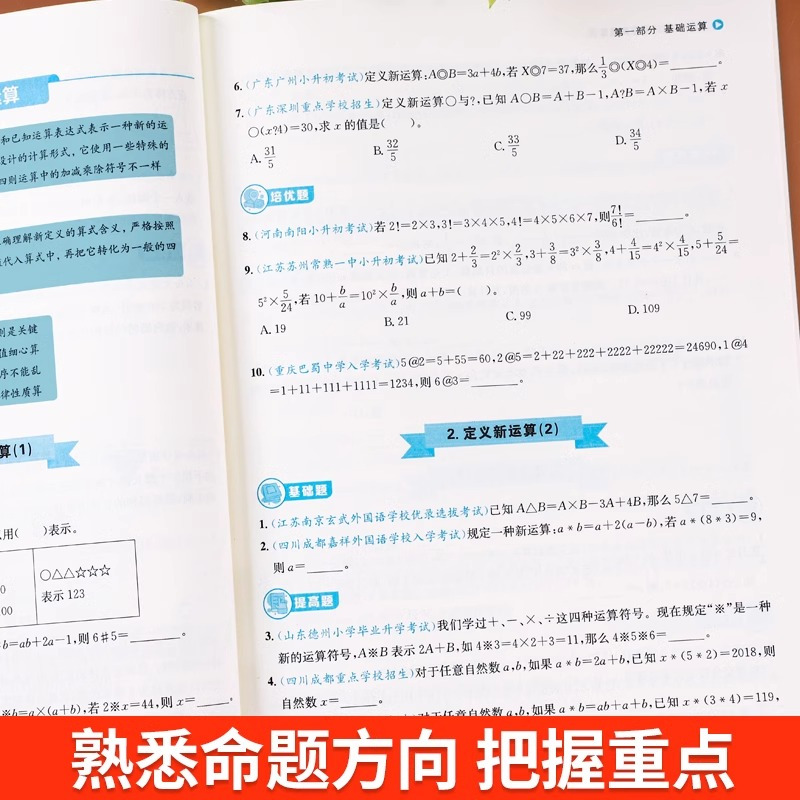 第一部分 基础运算
运算
和已知运算表达式表示一种新的运
设计的计算形式，它使用一些特殊的
四则运算中的加减乘除符号不一样
确理解新定义的算式含义，严格按照
代入算式中，再把它转化为一般的四
则是关键
值细心算
序不能乱
律性质算
算(1)
用(　　)表示。
○△△☆☆☆
表示 123
00
b=ab+2a-1,则6♯5=______。
※b=a×(a+b),若2※x=44,则x=____。
6.(广东广州小升初考试)定义新运算:A◎B=3a+4b,若X◎7=37,那么1/3◎(X◎4)=______。
7.(广东深圳重点学校招生)定义新运算○与?,已知A○B=A+B-1,A?B=A×B-1,若x
○(x?4)=30,求x的值是(　　)。
A.31/5 B.32/5 C.33/5 D.34/5
培优题
8.(河南南阳小升初考试)若2!=2×3,3!=3×4×5,4!=4×5×6×7,则7!/6!=______。
9.(江苏苏州常熟一中小升初考试)已知2+2/3=2²×2/3,3+3/8=3²×3/8,4+4/15=4²×4/15,5+5/24=
5²×5/24,若10+b/a=10²×b/a,则a+b=(　　)。
A.19 B.21 C.99 D.109
10.(重庆巴蜀中学入学考试)5@2=5+55=60,2@5=2+22+222+2222+22222=24690,1@4
=1+11+111+1111=1234,则6@3=______。
2.定义新运算(2)
基础题
1.(江苏南京玄武外国语学校优录选拔考试)已知A△B=A×B-3A+4B,那么5△7=_____。
2.(四川成都嘉祥外国语学校入学考试)规定一种新运算:a*b=a+2(a-b),若a*(8*3)=9,
则a=_____。
提高题
3.(山东德州小学毕业升学考试)我们学过+、-、×、÷这四种运算符号。现在规定“※”是一种
新的运算符号,A※B表示2A+B,如4※3=4×2+3=11,那么4※5※6=_____。
4.(四川成都重点学校招生)对于任意自然数a,b,如果a*b=2a+b,已知x*(5*2)=2018,则
自然数x=_____。
对于任意自然数a,b,如果a*b=ab+a+b,已知x*(3*4)=119,
熟悉命题方向 把握重点